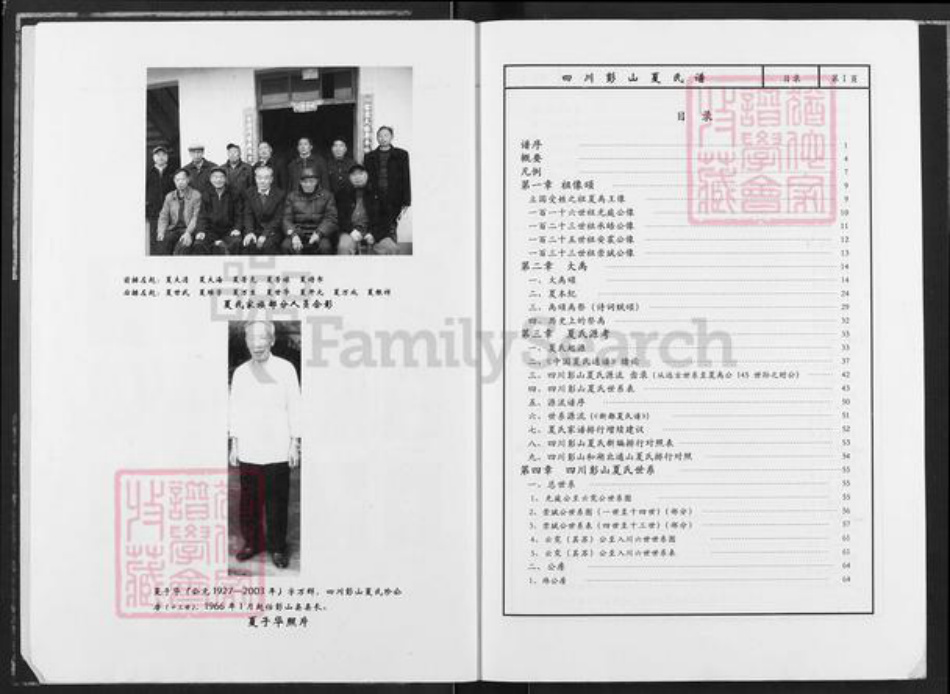 夏氏家族部分人员合影
夏子华(公元1927—2003年)字万
四川彭山夏氏
1966年1月起任彭山县县长。
夏子华照片
FamilySearch
四川彭山夏氏谱 目录 第1页
目录
谱序 1
概要 4
凡例 7
第一章 祖像颂 9
立国受姓之祖夏禹王像 9
一百一十六世祖光庭公像 10
一百二十三世祖 公像 11
一百二十五世祖安 公像 12
一百三十三世祖崇斌公像 13
第二章 大禹 14
一、大禹颂 14
二、夏本纪 24
三、禹颂禹祭(诗词赋颂) 29
四、历史上的祭禹 32
第三章 夏氏源考 33
一、夏氏起源 33
二、《中国夏氏通谱》 37
三、四川彭山夏氏源流 (从远古世系至夏禹公145世 ) 42
四、四川彭山夏氏世系表 43
五、源流谱序 50
六、世系源流(《新都夏氏谱》) 51
七、夏氏家谱排行增续建议 52
八、四川彭山夏氏新编排行对照表 53
九、四川彭山和湖北通山夏氏排行对照 54
第四章 四川彭山夏氏世系 55
一、总世系 55
1、光庭公至云霓公世系图 55
2、崇斌公世系图(一世至十四世)(部分) 56
3、崇斌公世系表(四世至十三世)(部分) 57
4、云霓( )公至入川六世世系图 61
5、云霓( )公至入川六世世系表 61
二、公房 64
1、 公房 64